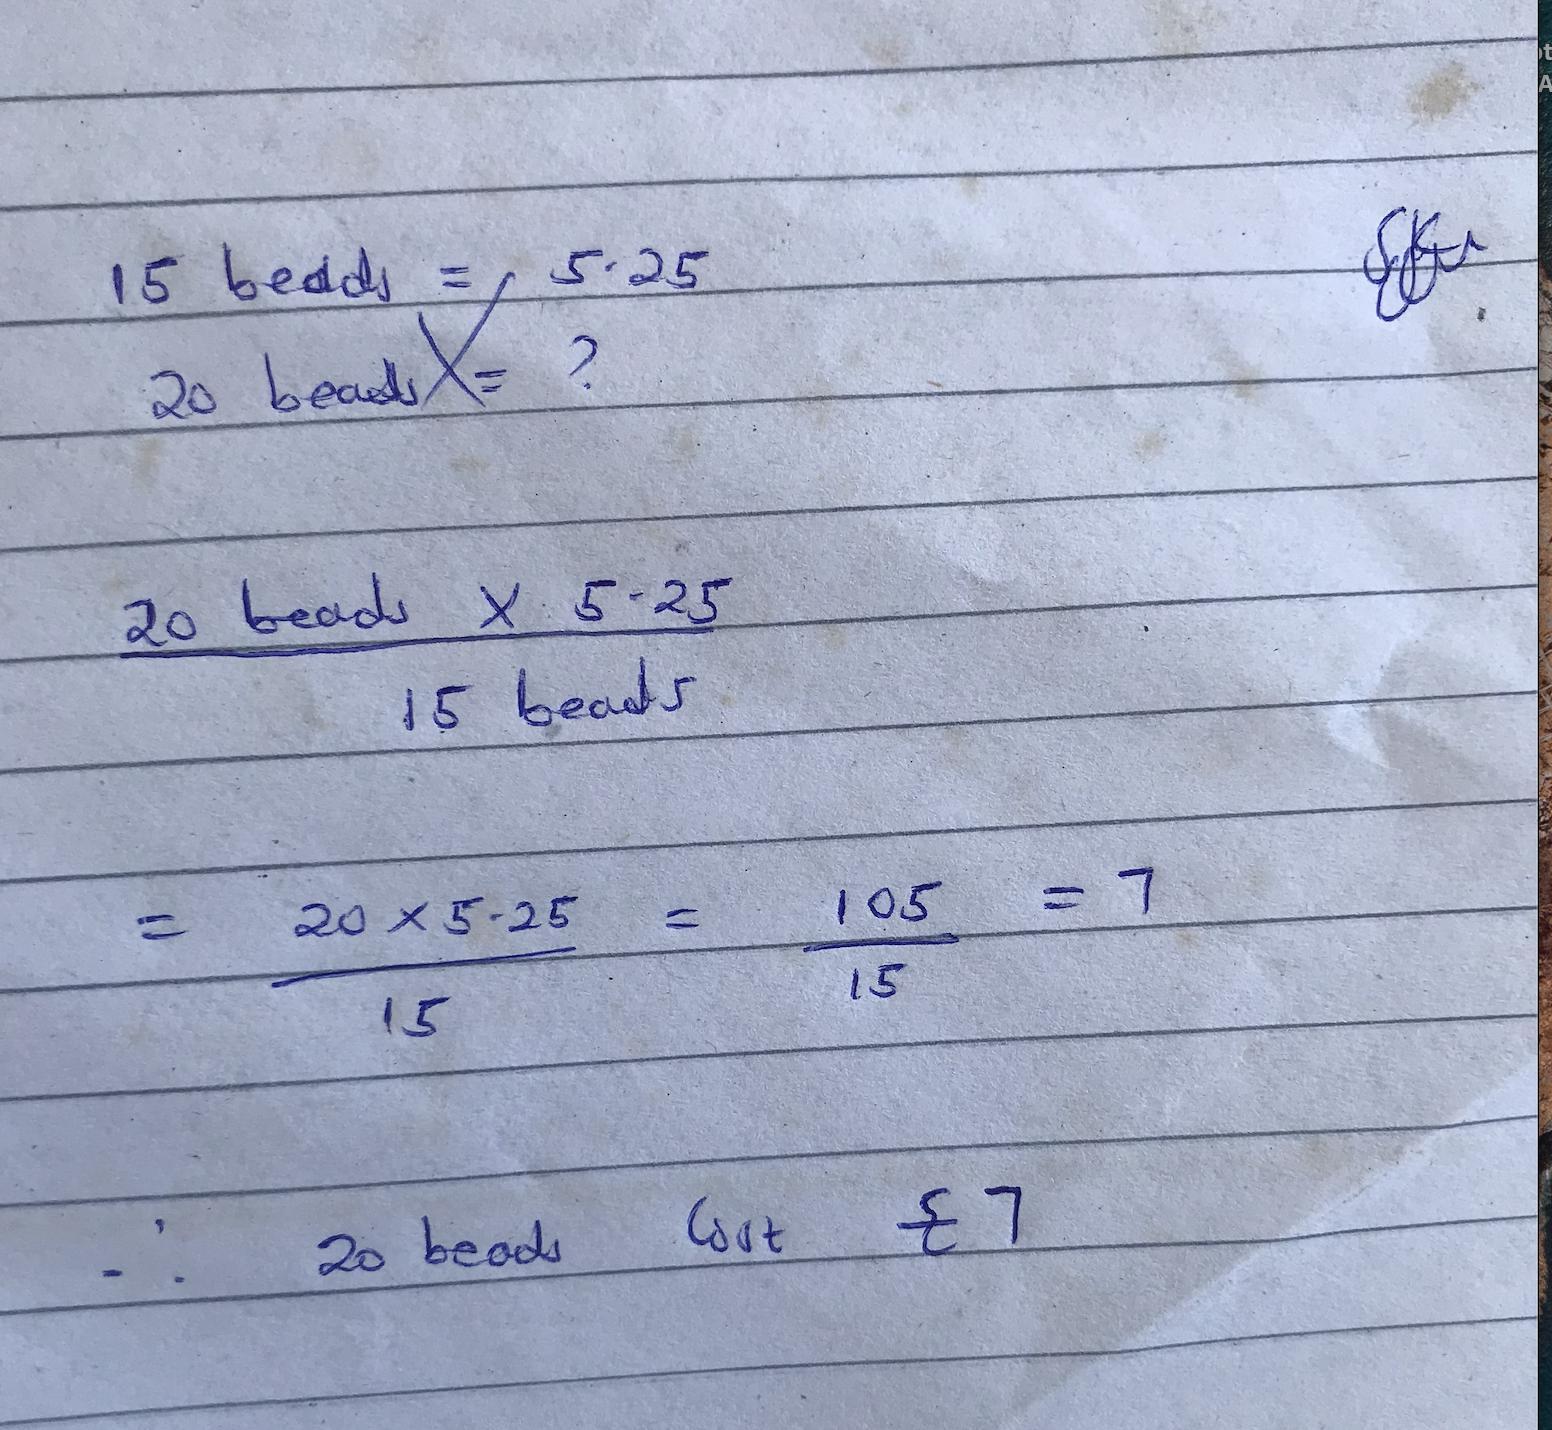 15 beads = 5.25
20 beads = ?
20 beads X 5.25
15 beads
= 20 x 5.25 = 105 = 7
15 15
∴ 20 beads Cost £7